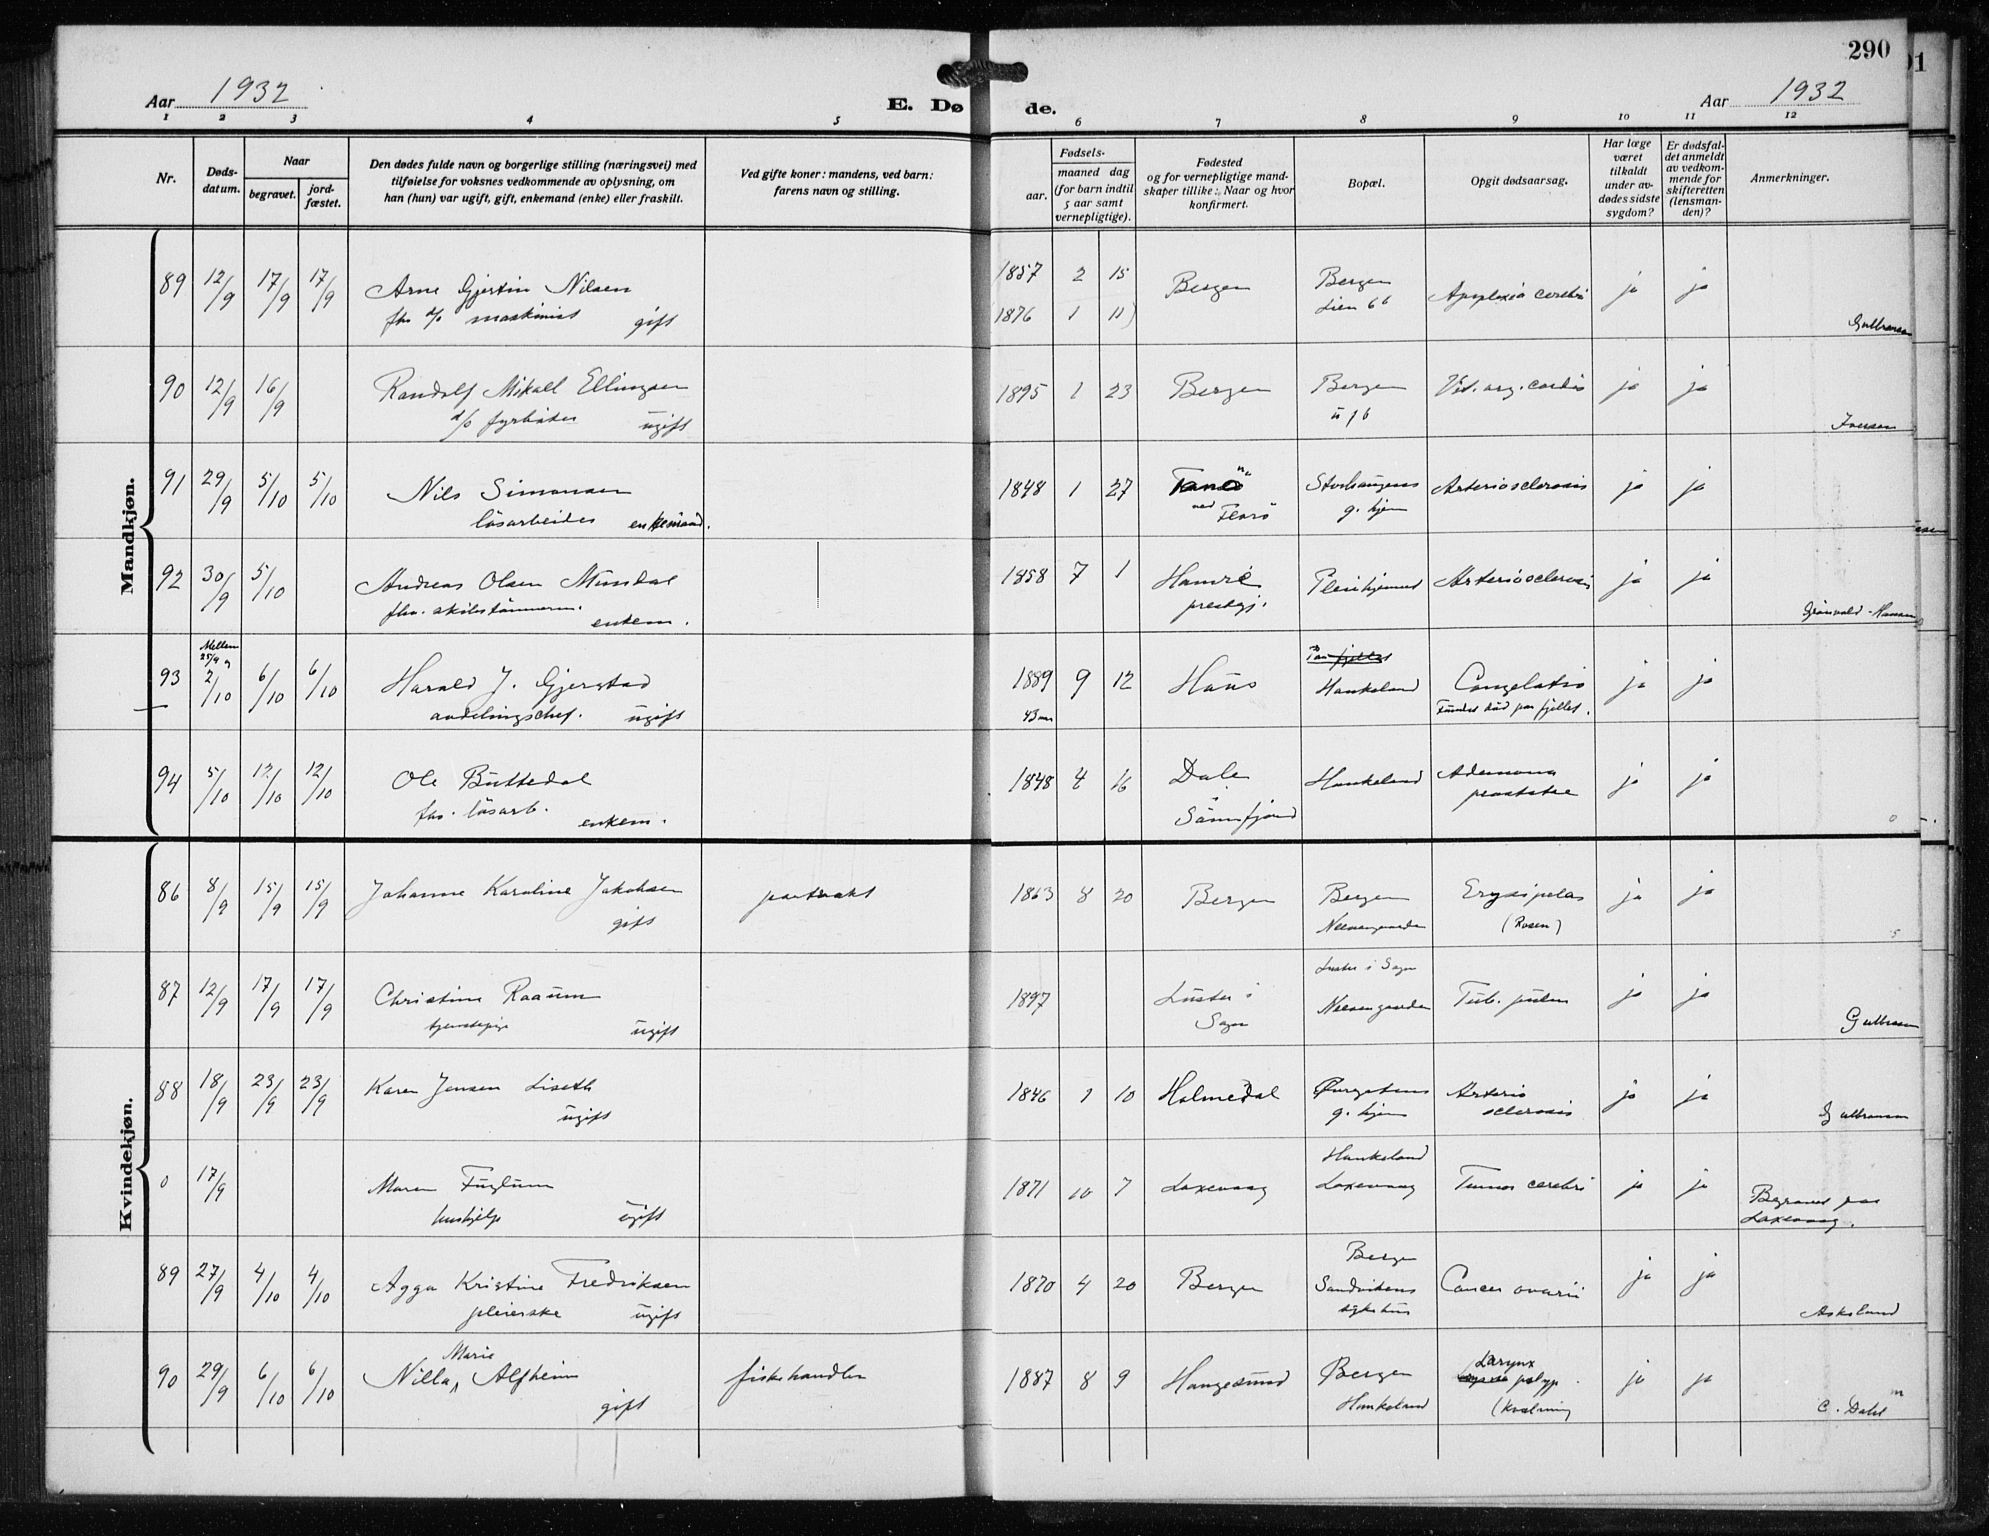 290
Aar 1932
E. Dø de.
Aar 1932
1 2 3 4 5 6 7 8 9 10 11 12
Nr.
Døds-
datum.
Naar
begravet.
jord-
fæstet.
Den dødes fulde navn og borgerlige stilling (næringsvei) med
tilføielse for voksnes vedkommende av oplysning, om
han (hun) var ugift, gift, enkemand (enke) eller fraskilt.
Ved gifte koner: mandens, ved barn:
farens navn og stilling.
Fødsels-
aar.
maaned dag
(for barn indtil
5 aar samt
vernepligtige).
Fødested
og for vernepligtige mand-
skaper tillike: Naar og hvor
konfirmert.
Bopæl.
Opgit dødsaarsag.
Har læge
været
tilkaldt
under av-
dødes sidste
sygdom?
Er dødsfal-
det anmeldt
av vedkom-
mende for
skifteretten
(lensman-
den)?
Anmerkninger.
Mandkjøn.
89 12/9 17/9 17/9 Arne Gjertin Nilsen 1857 2 15 Bergen Bergen Apoplexia cerebri ja ja
fhv. d/s maskinist gift 1876 1 11) Lien 66 Gulbransen
90 12/9 16/9 Randolf Mikall Ellingsen 1895 1 23 Bergen Bergen Vit. org. cordis ja ja
d/s fyrbøter ugift Iversen
91 29/9 5/10 5/10 Nils Simonsen 1848 1 27 Storhaugens Arteriosclerosis ja ja
løsarbeider enkemand. ved Florø g. hjem
92 30/9 5/10 Andreas Olsen Mundal 1858 7 1 Hamre Pleiehjemmet Arteriosclerosis ja ja
fhv. skibstømmerm. enkem. prestgj. Grønvold-Hansen
93 Mellem 25/9 og 2/10 6/10 6/10 Harald J. Gjerstad 1889 9 12 Haus Haukeland Congelatio ja ja
avdelingschef. ugift 43 aar Fundet død paa fjellet.
94 5/10 12/10 12/10 Ole Buttedal 1848 4 16 Dale Haukeland Adenoma ja ja
fhv. løsarb. enkem. i Sønnfjord prostatae
Kvindekjøn.
86 8/9 15/9 15/9 Johanne Karoline Jakobsen 1863 8 20 Bergen Bergen Erysipelas ja ja
gift Neevengaarden (Rosen)
87 12/9 17/9 17/9 Christine Raaum 1897 Luster i Luster i Sogn Tub. pulm ja ja
tjenestepige ugift Sogn Neevengaarden Gulbransen
88 18/9 23/9 23/9 Karen Jensen Liseth 1846 1 10 Holmedal Øvregatens Arterio ja ja
ugift g. hjem sclerosis Gulbransen
0 17/9 Maren Fuglum 1871 10 7 Laxevaag Haukeland Tumor cerebri ja ja
hushjelp ugift Laxevaag Begravet paa
Laxevaag.
89 27/9 4/10 4/10 Agga Kristine Fredriksen 1870 4 20 Bergen Bergen Cancer ovarii ja ja
pleierske ugift Sandvikens
sykehus Askeland
90 29/9 6/10 6/10 Nilla Marie Alfheim fiskehandler 1887 8 9 Haugesund Bergen Larynx polyp. ja ja
gift Haukeland (Kvælning C. Dahl